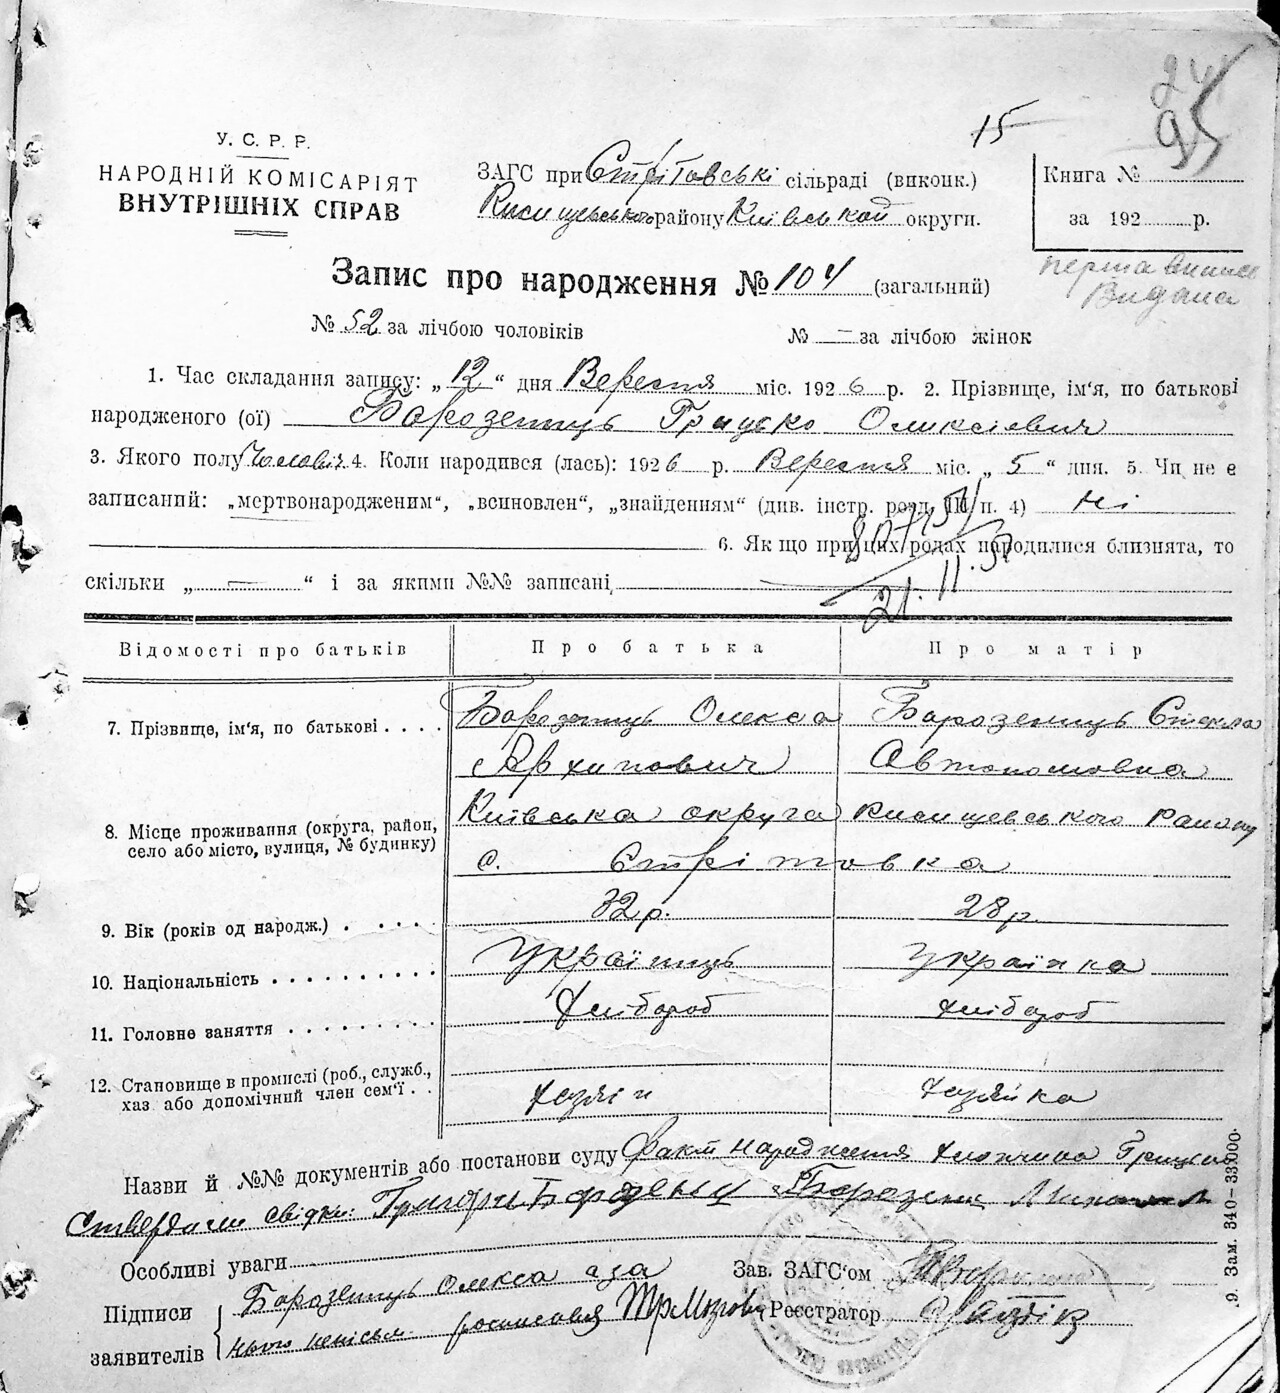 24
95
15
У. С. Р. Р.
НАРОДНІЙ КОМІСАРІЯТ
ВНУТРІШНІХ СПРАВ
ЗАГС при Стрітовські сільраді (виконк.)
району Київської округи.
Книга №
за 192 р.
перша виписъ
Видана
Запис про народження № 104 (загальний)
№ 52 за лічбою чоловіків № — за лічбою жінок
1. Час складання запису: „12“ дня Вересня міс. 1926 р. 2. Прізвище, ім'я, по батькові
народженого (ої) Борозенець Грицько Олексієвич
3. Якого полу Чоловіч. 4. Коли народився (лась): 1926 р. Вересня міс. „5“ дня. 5. Чи не є
записаний: „мертвонародженим“, „всиновлен“, „знайденням“ (див. інстр. розд. III п. 4) Ні
6. Як що при цих родах народилися близнята, то
скільки „ — “ і за якими №№ записані
21.11.57
Відомості про батьків Про батька Про матір
7. Прізвище, ім'я, по батькові . . . . Борозенець Олекса Борозенець Стекла
Архипович Автономовна
8. Місце проживання (округа, район, село або місто, вулиця, № будинку) Київська округа району
с. Стрітовка
9. Вік (років од народж.) . . . . . 32 р. 28 р.
10. Національність . . . . . . . . . Українець Українка
11. Головне заняття . . . . . . . . . Хлібороб хлібороб
12. Становище в промислі (роб., служб.,
хаз або допомічний член сем'ї . . хазяїн хазяйка
Назви й №№ документів або постанови суду Факт народження хлопчика Грицька
Ствердили свідки: Григорій Борозенець Борозенец
Особливі уваги
Зав. ЗАГС'ом
Підписи
заявителів
Борозенець Олекса а за
нього росписався
Реєстратор
9. Зам. 340—33000.